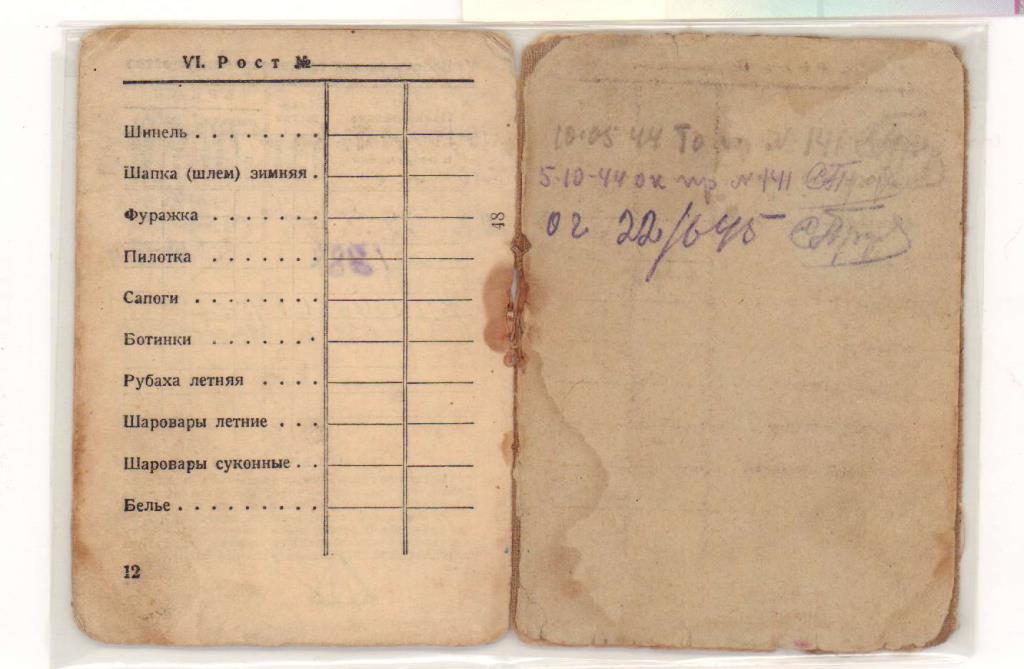 VI. Рост №
Шинель
Шапка (шлем) зимняя
Фуражка
Пилотка
Сапоги
Ботинки
Рубаха летняя
Шаровары летние
Шаровары суконные
Белье
12
48
10.05 44 То № 141
5-10-44 ок пр № 141
22/645